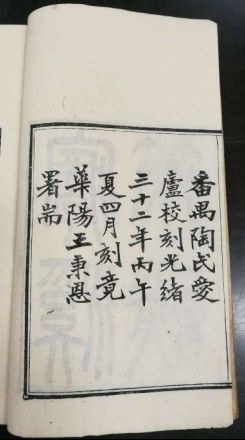 番禺陶氏愛
廬校刻光緒
三十二年丙午
夏四月刻竟
華陽王秉恩
署耑